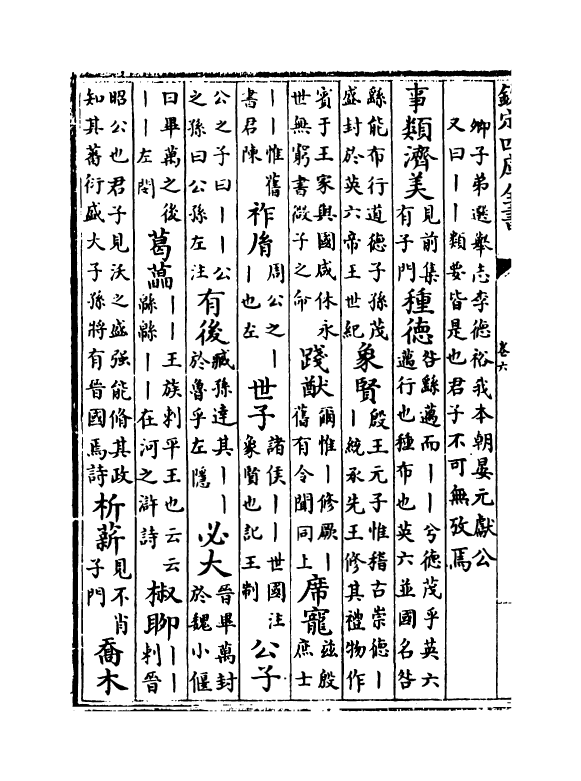 欽定四庫全書
卷六
卿子弟選舉志李德裕我本朝晏元獻公
又曰丨丨類要皆是也君子不可無攷焉
事類濟美見前集有子門種德咎繇邁而丨丨兮德茂乎英六邁行也種布也英六並國名咎
繇能布行道德子孫茂盛封於英六帝王世紀象賢殷王元子惟稽古崇德丨丨統承先王修其禮物作
賓于王家與國咸休永世無窮書微子之命踐猷爾惟丨修厥丨舊有令聞同上席寵兹殷庶士
丨丨惟舊書君陳祚胤周公之丨丨也左世子諸侯丨丨世國注象賢也記王制公子
公之子曰丨丨公之孫曰公孫左注有後臧孫達其丨丨於魯乎左隱必大晉畢萬封於魏小偃
曰畢萬之後丨丨左閔葛藟丨丨王族刺平王也云云緜緜丨丨在河之滸詩椒聊丨丨刺晉
昭公也君子見沃之盛强能脩其政知其蕃衍盛大子孫將有晉國焉詩析薪見不肖子門喬木